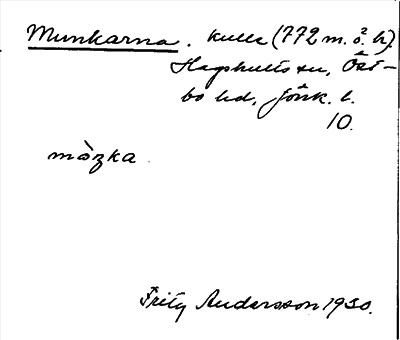 Munkarna. kulle (172 m. ö. h.)
Hagshults sn, Öst-
bo hd, Jönk. l.
10.
mùŋka
Fritz Andersson 1930.